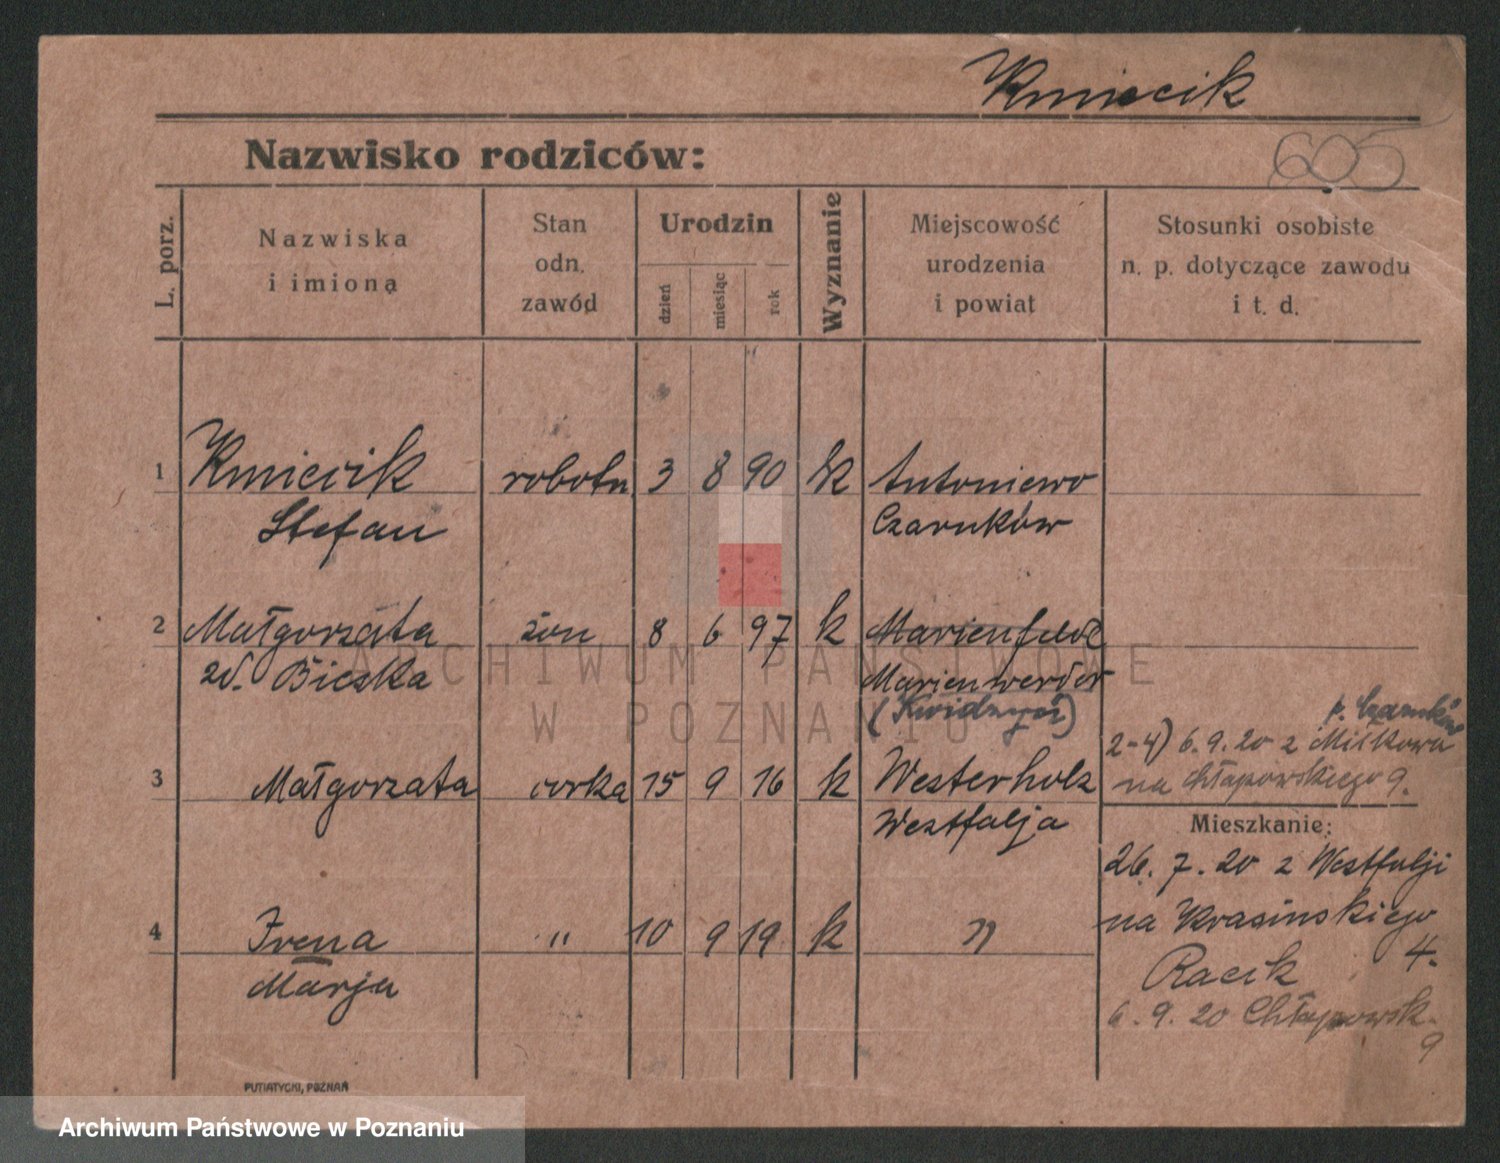 Kmiecik
605
Nazwisko rodziców:
L. porz.
Nazwiska
i imiona
Stan
odn.
zawód
Urodzin
dzień
miesiąc
rok
Wyznanie
Miejscowość
urodzenia
i powiat
Stosunki osobiste
n. p. dotyczące zawodu
i t. d.
1 Kmiecik robotn. 3 8 90 k Antoniewo
Stefan Czarnków
2 Małgorzata żon 8 6 97 k Marienfelde
zd. Bieska Marienwerder
(Kwidzyń)
p. Czarnków
2-4) 6.9.20 z Miłkowa
na Chłapowskiego 9.
3 Małgorzata córka 15 9 16 k Westerholz
Westfalja
Mieszkanie:
26. 7. 20 z Westfalji
na Krasińskiego
4.
Racik
6. 9. 20 Chłapowsk.
9
4 Irena " 10 9 19 k "
Marja
PUTIATYCKI, POZNAŃ
ARCHIWUM PAŃSTWOWE
W POZNANIU
Archiwum Państwowe w Poznaniu